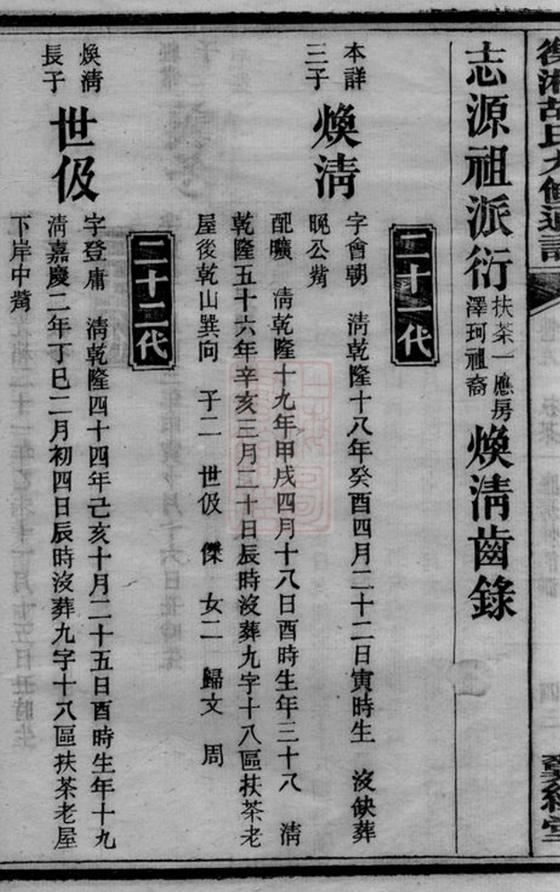 衡湘胡氏九修通譜
志源祖派衍 扶茶一應房 澤珂祖裔 煥清齒錄
二十一代
本詳三子 煥清 字會朝 清乾隆十八年癸酉四月二十二日寅時生 沒缺葬
晚公塝
配曠 清乾隆十九年甲戌四月十八日酉時生年三十八 清
乾隆五十六年辛亥三月二十日辰時沒葬九字十八區扶茶老
屋後乾山巽向 子二 世伋 傑 女二 歸文 周
二十二代
煥清長子 世伋 字登庸 清乾隆四十四年己亥十月二十五日酉時生年十九
清嘉慶二年丁巳二月初四日辰時沒葬九字十八區扶茶老屋
下岸中塝